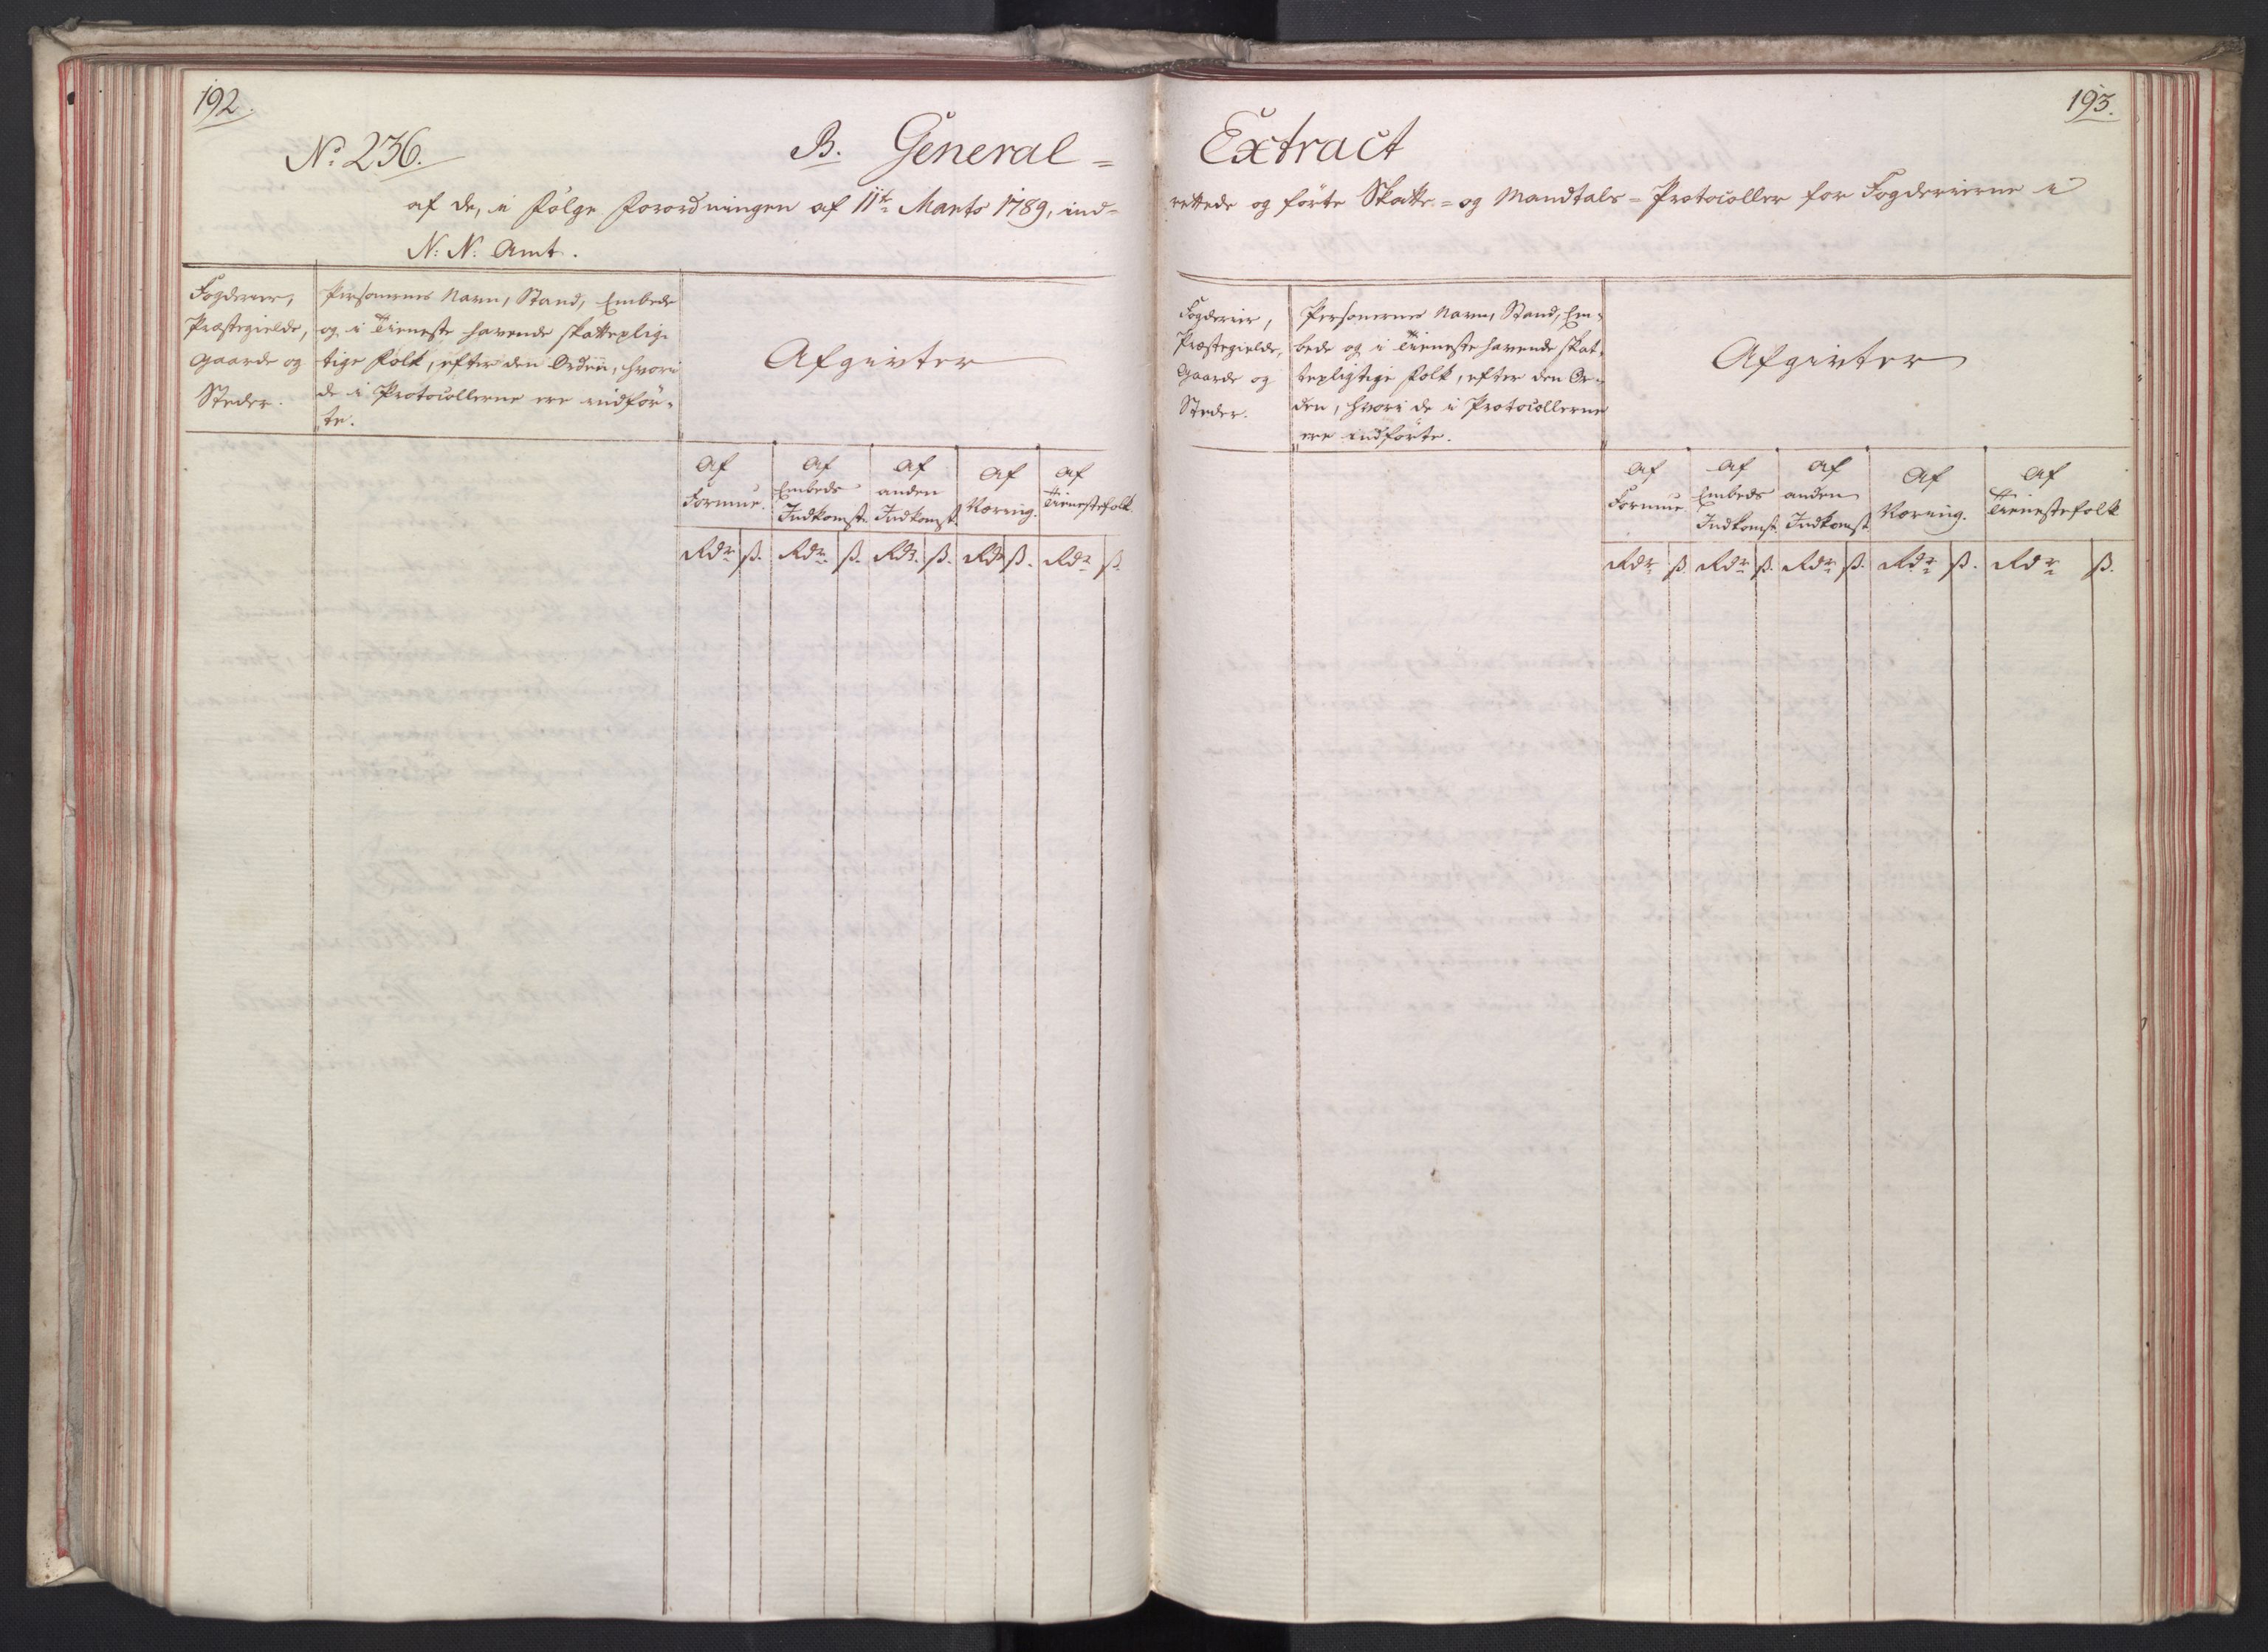 192.
No. 236.
B. General=
af de, i Følge Forordningen af 11te Marts 1789, ind=
N: N: Amt.
Fogderier,
Præstegielde,
Gaarde og
Steder.
Personernes Navn, Stand, Embede
og i Tieneste havende skatteplig=
tige Folk, efter den Orden, hvori
de i Protocollerne ere indför=
te.
Afgivter
Af Formue.
Af Embeds Indkomst.
Af anden Indkomst.
Af Næring.
Af Tienestefolk.
Rdr ß. Rdr ß. Rdr. ß. Rdr ß. Rdr ß.
193.
Extract
rettede og förte Skatte= og Mandtals=Protocoller for Fogderierne i
Fogderier,
Præstegielde,
Gaarde og
Steder.
Personernes Navn, Stand, Em=
bede og i Tieneste havende skat=
tepligtige Folk, efter den Or=
den, hvori de i Protocollerne
ere indförte.
Afgivter
Af Formue
Af Embeds Indkomst.
Af anden Indkomst
Af Næring.
Af Tienestefolk
Rdr ß. Rdr ß. Rdr ß. Rdr ß. Rdr ß.